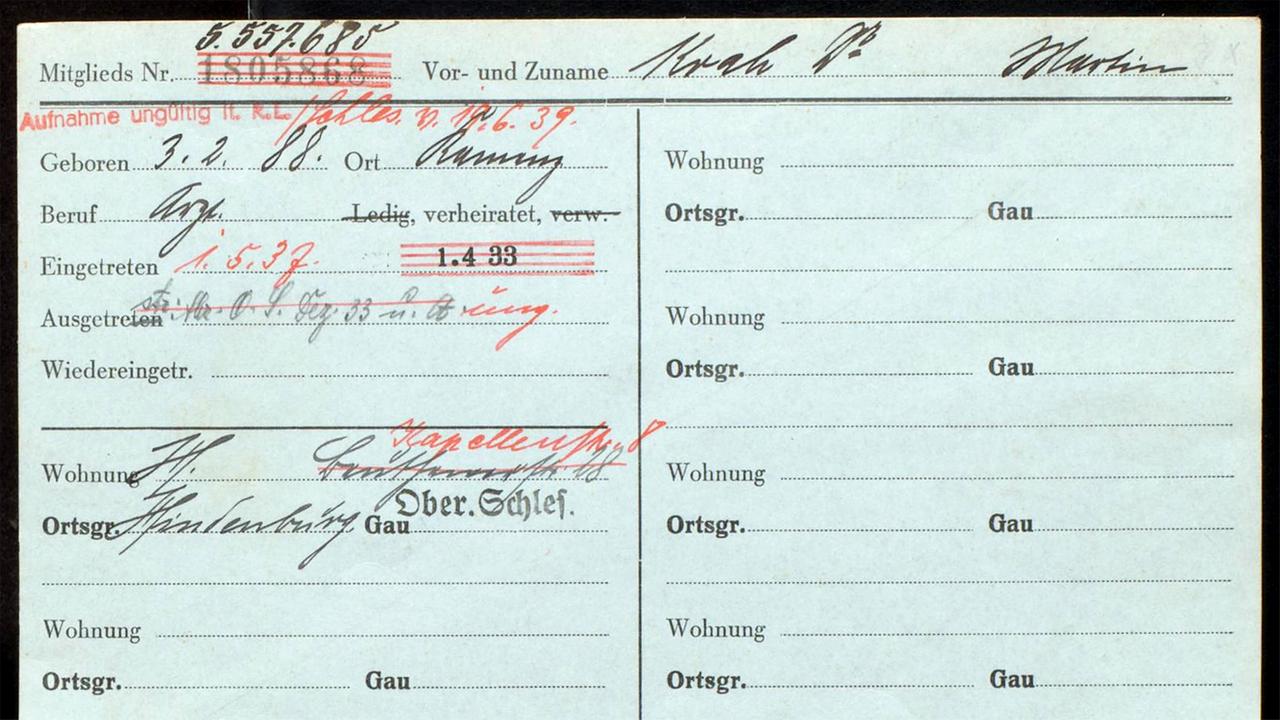 5.557.685
Mitglieds Nr. 1805868 Vor- und Zuname Krah Dr Martin
Aufnahme ungültig lt. R.L./Schles. v. 19.6.39.
Geboren 3. 2. 88. Ort
Beruf Arzt. Ledig, verheiratet, verw.
Eingetreten 1. 5. 37. 1.4 33
Ausgetreten str. O. S. Dez. 33 u. A ung.
Wiedereingetr.
Kapellenstr. 8
Wohnung H. Beuthenerstr 28
Ober.Schles.
Ortsgr. Hindenburg Gau
Wohnung
Ortsgr. Gau
Wohnung
Ortsgr. Gau
Wohnung
Ortsgr. Gau
Wohnung
Ortsgr. Gau
Wohnung
Ortsgr. Gau